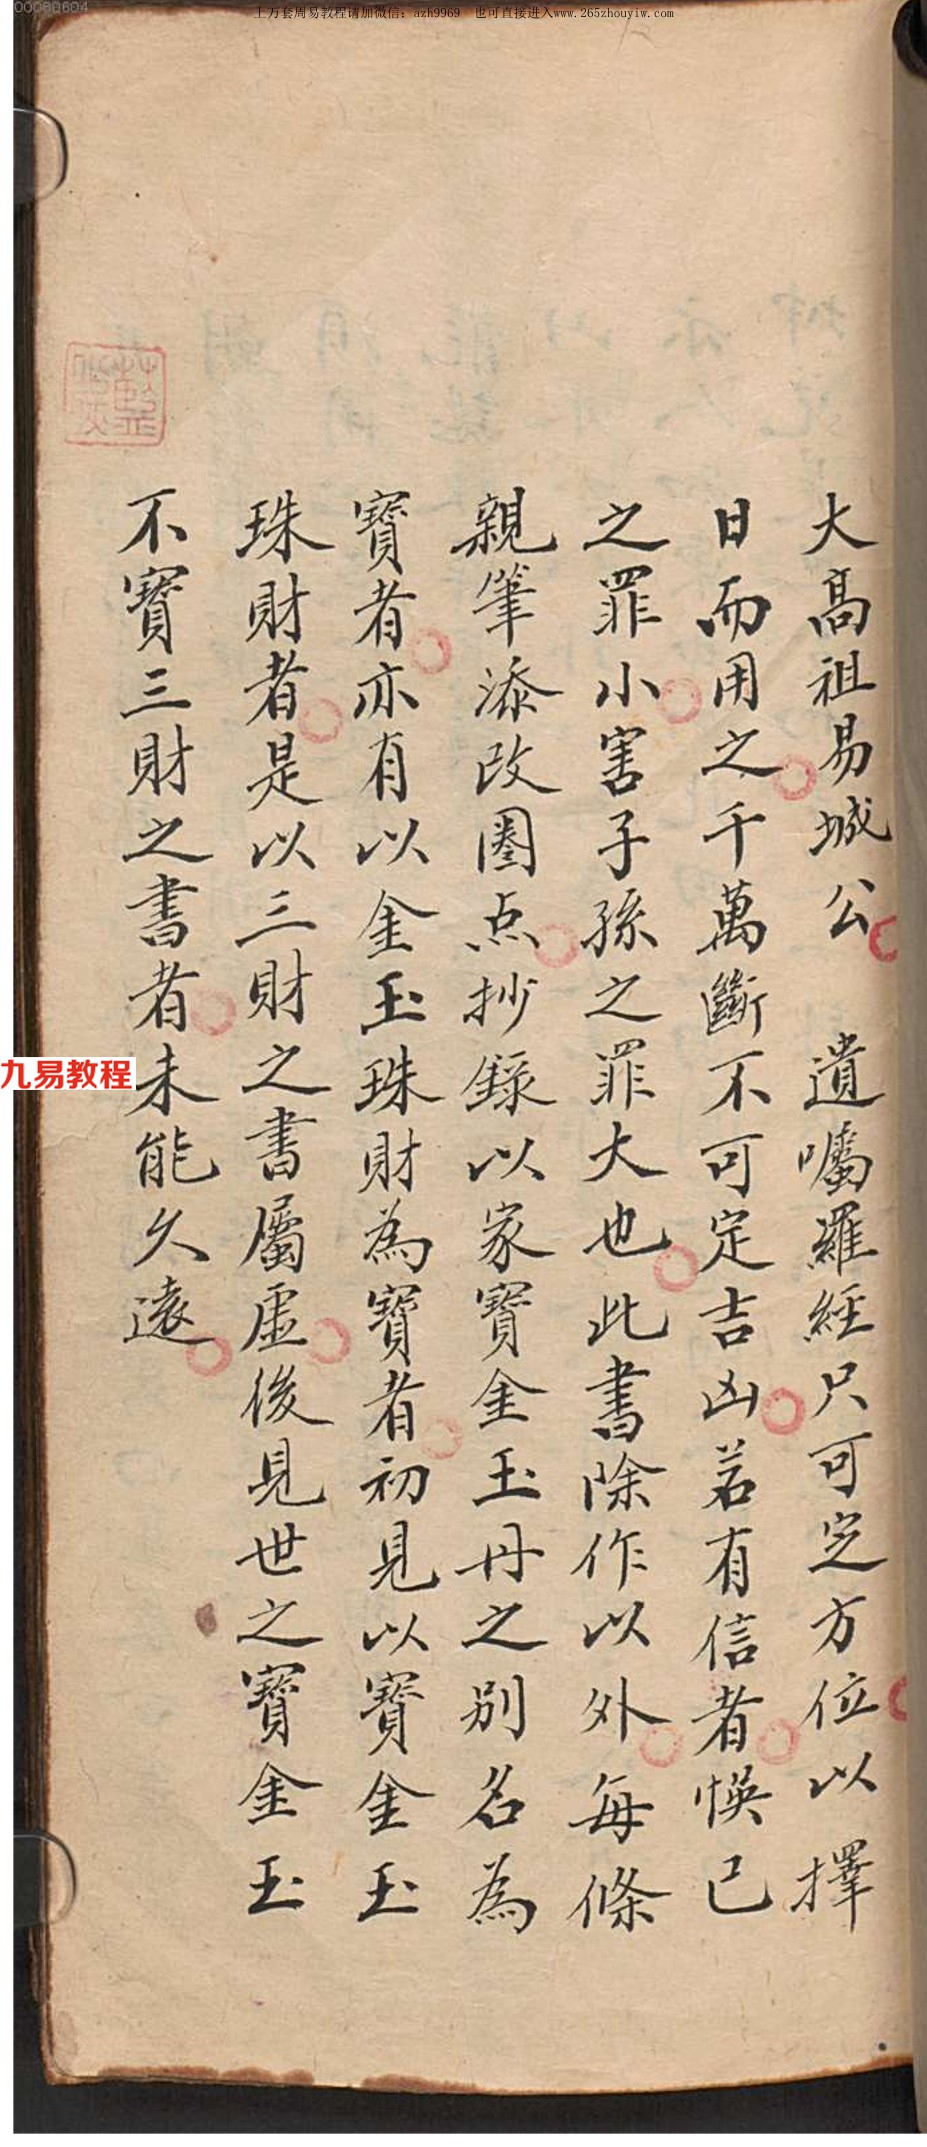 00060604
上万套周易教程请加微信：azh9969　也可直接进入www.265zhouyiw.com
大高祖易城公　遺囑羅經尺可定方位以擇
日而用之千萬斷不可定吉凶若有信者悞己
之罪小害子孫之罪大也此書除作以外每條
親筆添改圈点抄錄以家寶金玉丹之別名為
寶者亦有以金玉珠財為寶者初見以寶金玉
珠財者是以三財之書屬虛後見世之寶金玉
不寶三財之書者未能久遠
九易教程